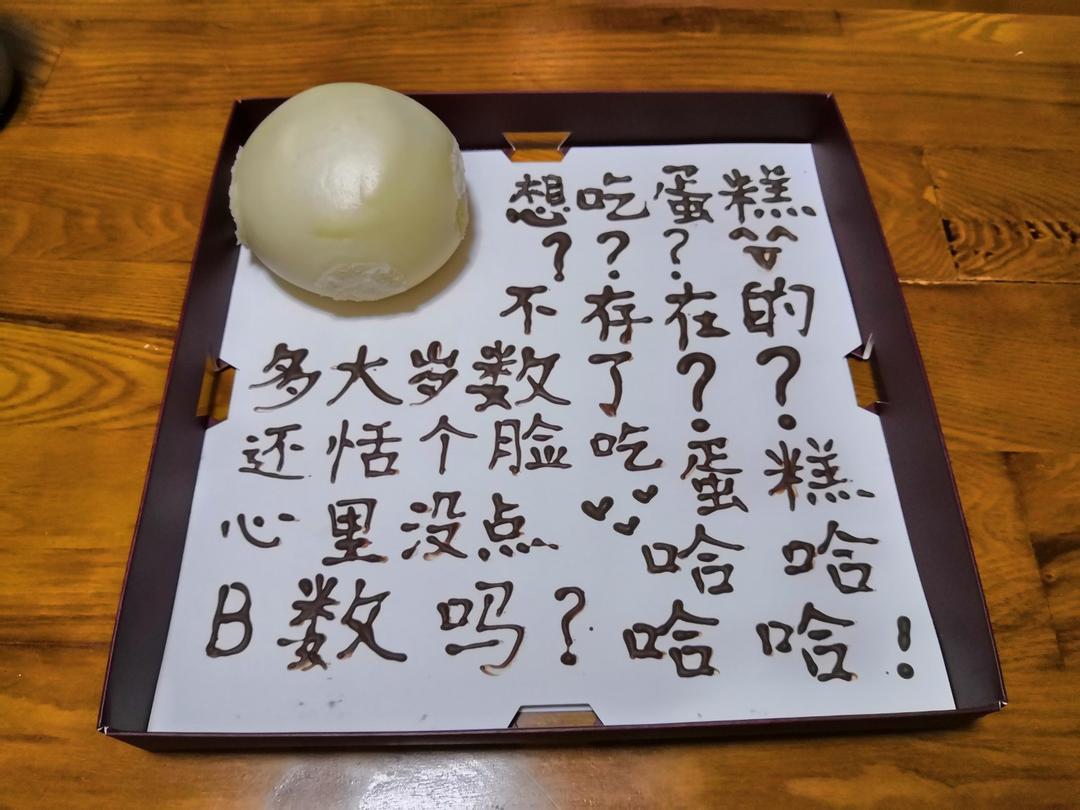 想吃蛋糕
???
不存在的
多大岁数了??
还恬个脸吃蛋糕
心里没点
B数吗?
哈哈
哈哈!